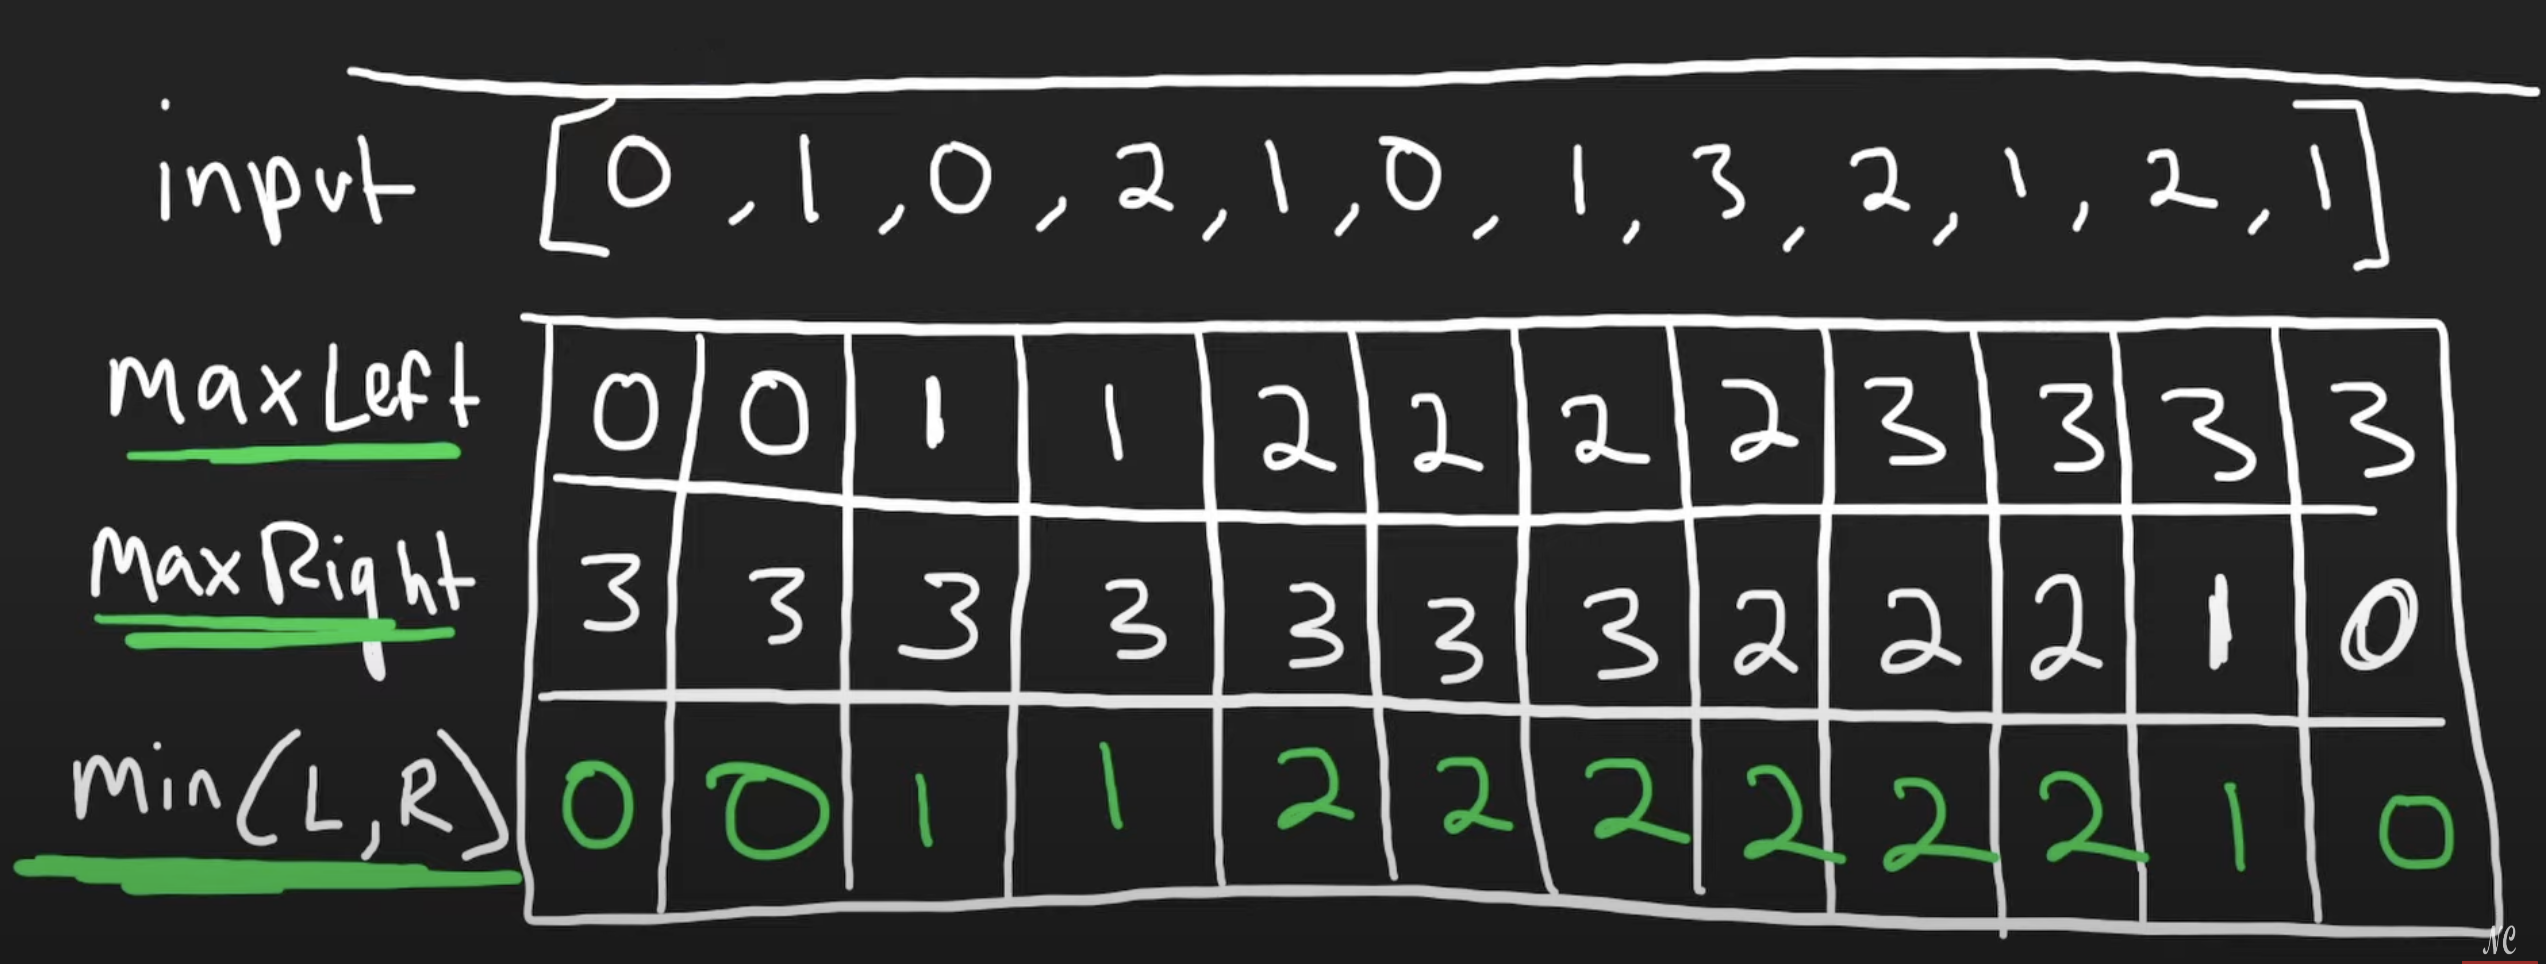 input [0, 1, 0, 2, 1, 0, 1, 3, 2, 1, 2, 1]
maxLeft 0 0 1 1 2 2 2 2 3 3 3 3
MaxRight 3 3 3 3 3 3 3 2 2 2 1 0
Min(L,R) 0 0 1 1 2 2 2 2 2 2 1 0
NC